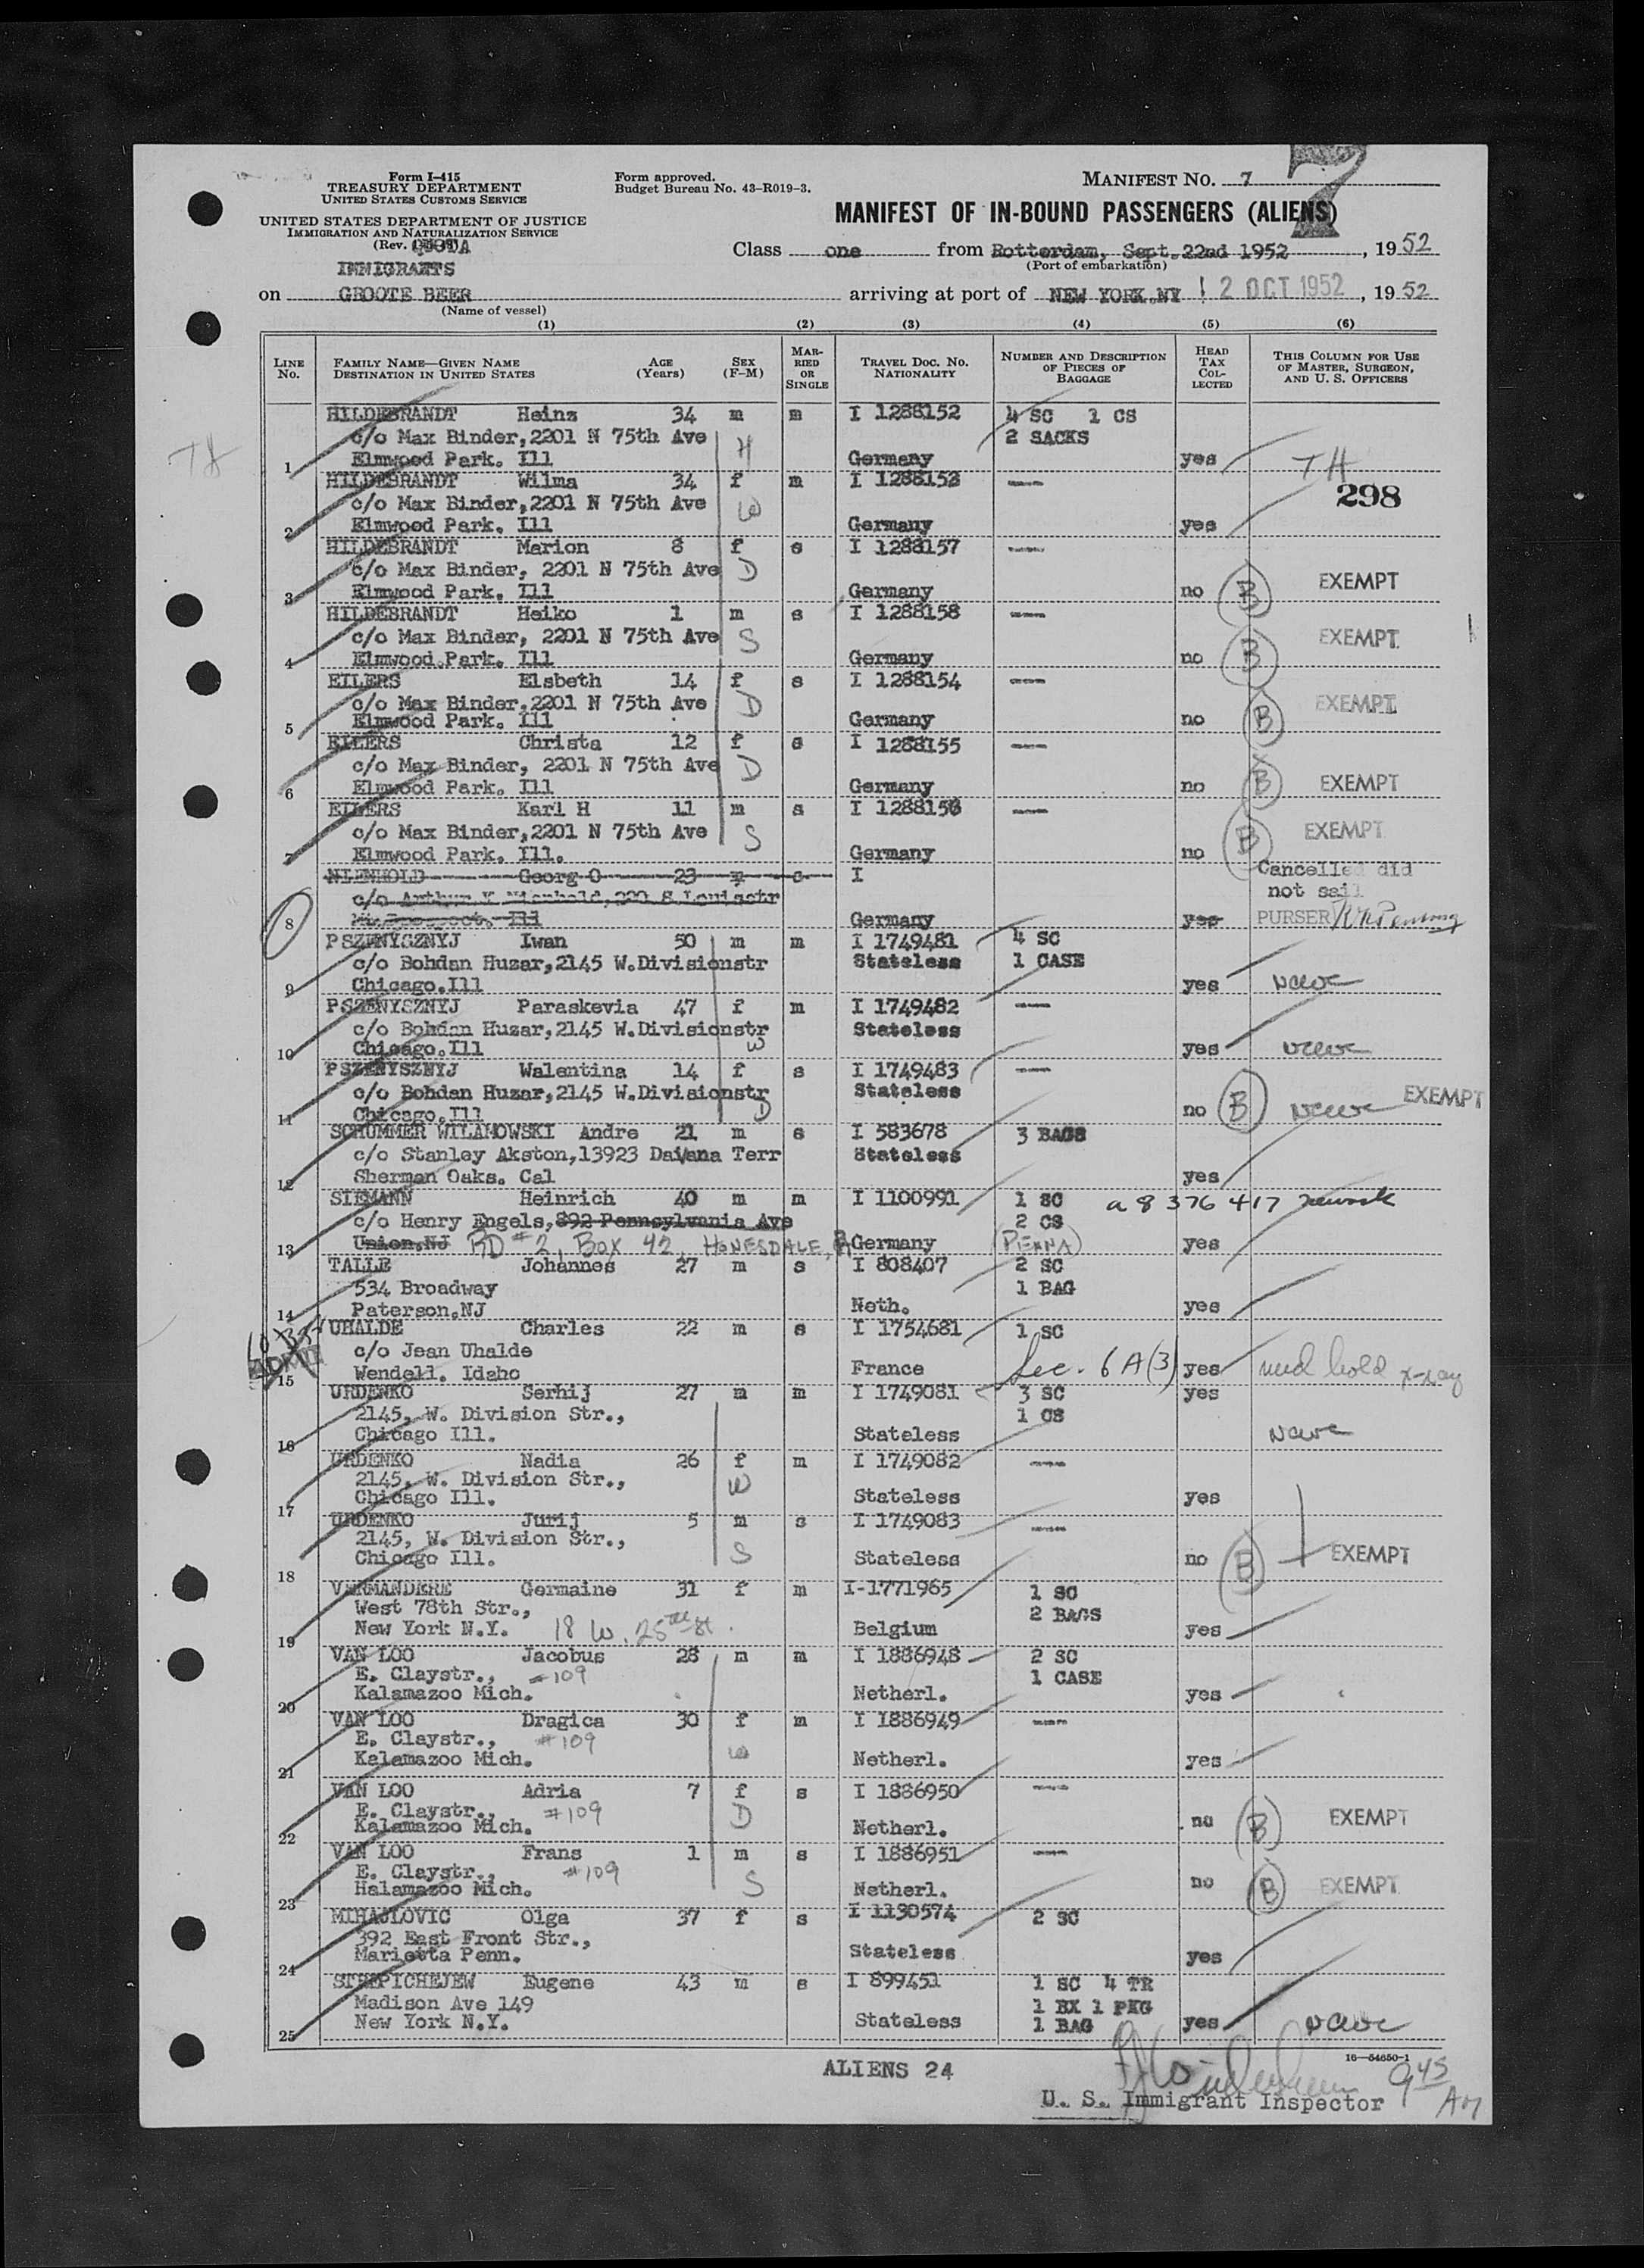 Form I-415
TREASURY DEPARTMENT
UNITED STATES CUSTOMS SERVICE
UNITED STATES DEPARTMENT OF JUSTICE
IMMIGRATION AND NATURALIZATION SERVICE
(Rev.
IMMIGRANTS
Form approved.
Budget Bureau No. 43-R019-3.
MANIFEST No. 7
7
MANIFEST OF IN-BOUND PASSENGERS (ALIENS)
Class one from Rotterdam, Sept. 22nd 1952, 1952
(Port of embarkation)
on GROOTE BEER arriving at port of NEW YORK.NY 2 OCT 1952, 1952
(Name of vessel)
(1) (2) (3) (4) (5) (6)
LINE No. FAMILY NAME—GIVEN NAME DESTINATION IN UNITED STATES AGE (Years) SEX (F-M) MARRIED OR SINGLE TRAVEL DOC. NO. NATIONALITY NUMBER AND DESCRIPTION OF PIECES OF BAGGAGE HEAD TAX COLLECTED THIS COLUMN FOR USE OF MASTER, SURGEON, AND U. S. OFFICERS
HILDEBRANDT Heinz 34 m m I 1288152 4 SC 1 CS
c/o Max Binder,2201 N 75th Ave H 2 SACKS
1 Elmwood Park. Ill Germany yes TH
HILDEBRANDT Wilma 34 f m I 1288153 —
c/o Max Binder,2201 N 75th Ave W 298
2 Elmwood Park. Ill Germany yes
HILDEBRANDT Marion 8 f s I 1288157 —
c/o Max Binder, 2201 N 75th Ave D
3 Elmwood Park. Ill Germany no B EXEMPT
HILDEBRANDT Heiko 1 m s I 1288158 —
c/o Max Binder, 2201 N 75th Ave S
4 Elmwood.Park. Ill Germany no B EXEMPT
EILERS Elsbeth 14 f s I 1288154 —
c/o Max Binder.2201 N 75th Ave D
5 Elmwood Park. Ill Germany no B EXEMPT
EILERS Christa 12 f s I 1288155 —
c/o Max Binder, 2201 N 75th Ave D
6 Elmwood Park. Ill Germany no B EXEMPT
EILERS Karl H 11 m s I 1288156 —
c/o Max Binder,2201 N 75th Ave S
7 Elmwood Park. Ill. Germany no B EXEMPT
NIENHOLD Georg O 23 I Cancelled did
c/o Arthur Nienhold, S Louisstr not sail
8 Mt. Prospect. Ill Germany yes PURSER
PSZENYSZNYJ Iwan 50 m m I 1749481 4 SC
c/o Bohdan Huzar,2145 W.Divisionstr Stateless 1 CASE
9 Chicago.Ill yes
PSZENYSZNYJ Paraskevia 47 f m I 1749482 —
c/o Bohdan Huzar,2145 W.Divisionstr Stateless
10 Chicago.Ill W yes
PSZENYSZNYJ Walentina 14 f s I 1749483 —
c/o Bohdan Huzar,2145 W.Divisionstr Stateless
11 Chicago.Ill D no B EXEMPT
SCHUMMER WILAMOWSKI Andre 21 m s I 583678 3 BAGS
c/o Stanley Akston,13923 Davana Terr Stateless
12 Sherman Oaks. Cal yes
SIEMANN Heinrich 40 m m I 1100991 1 SC a 8 376 417 Newark
c/o Henry Engels,892 Pennsylvania Ave 2 CS
13 Union.NJ RD #2, Box 42, HONESDALE, Germany (PENNA) yes
TALLE Johannes 27 m s I 808407 2 SC
534 Broadway 1 BAG
14 Paterson.NJ Neth. yes
UHALDE Charles 22 m s I 1754681 1 SC
c/o Jean Uhalde
15 Wendell. Idaho France Sec. 6A(3) yes med hold x-ray
URDENKO Serhij 27 m m I 1749081 3 SC yes
2145, W. Division Str., 1 CS
16 Chicago Ill. Stateless
URDENKO Nadia 26 f m I 1749082 —
2145, W. Division Str., W
17 Chicago Ill. Stateless yes
URDENKO Jurij 5 m s I 1749083 —
2145, W. Division Str.,
18 Chicago Ill. S Stateless no B EXEMPT
VERMANDERE Germaine 31 f m I-1771965 1 SC
West 78th Str., 2 BAGS
19 New York N.Y. 18 W. 25th St. Belgium yes
VAN LOO Jacobus 28 m m I 1886948 2 SC
E. Claystr., #109 1 CASE
20 Kalamazoo Mich. Netherl. yes
VAN LOO Dragica 30 f m I 1886949 —
E. Claystr., #109 W
21 Kalamazoo Mich. Netherl. yes
VAN LOO Adria 7 f s I 1886950 —
E. Claystr., #109 D
22 Kalamazoo Mich. Netherl. no B EXEMPT
VAN LOO Frans 1 m s I 1886951 —
E. Claystr., #109
23 Halamazoo Mich. S Netherl. no B EXEMPT
MIHAJLOVIC Olga 37 f s I 1130574 2 SC
392 East Front Str.,
24 Marietta Penn. Stateless yes
STREPICHEJEW Eugene 43 m s I 899451 1 SC 4 TR
Madison Ave 149 1 BX 1 PKG
25 New York N.Y. Stateless 1 BAG yes
ALIENS 24
16—54650-1
U. S. Immigrant Inspector 9 45 AM